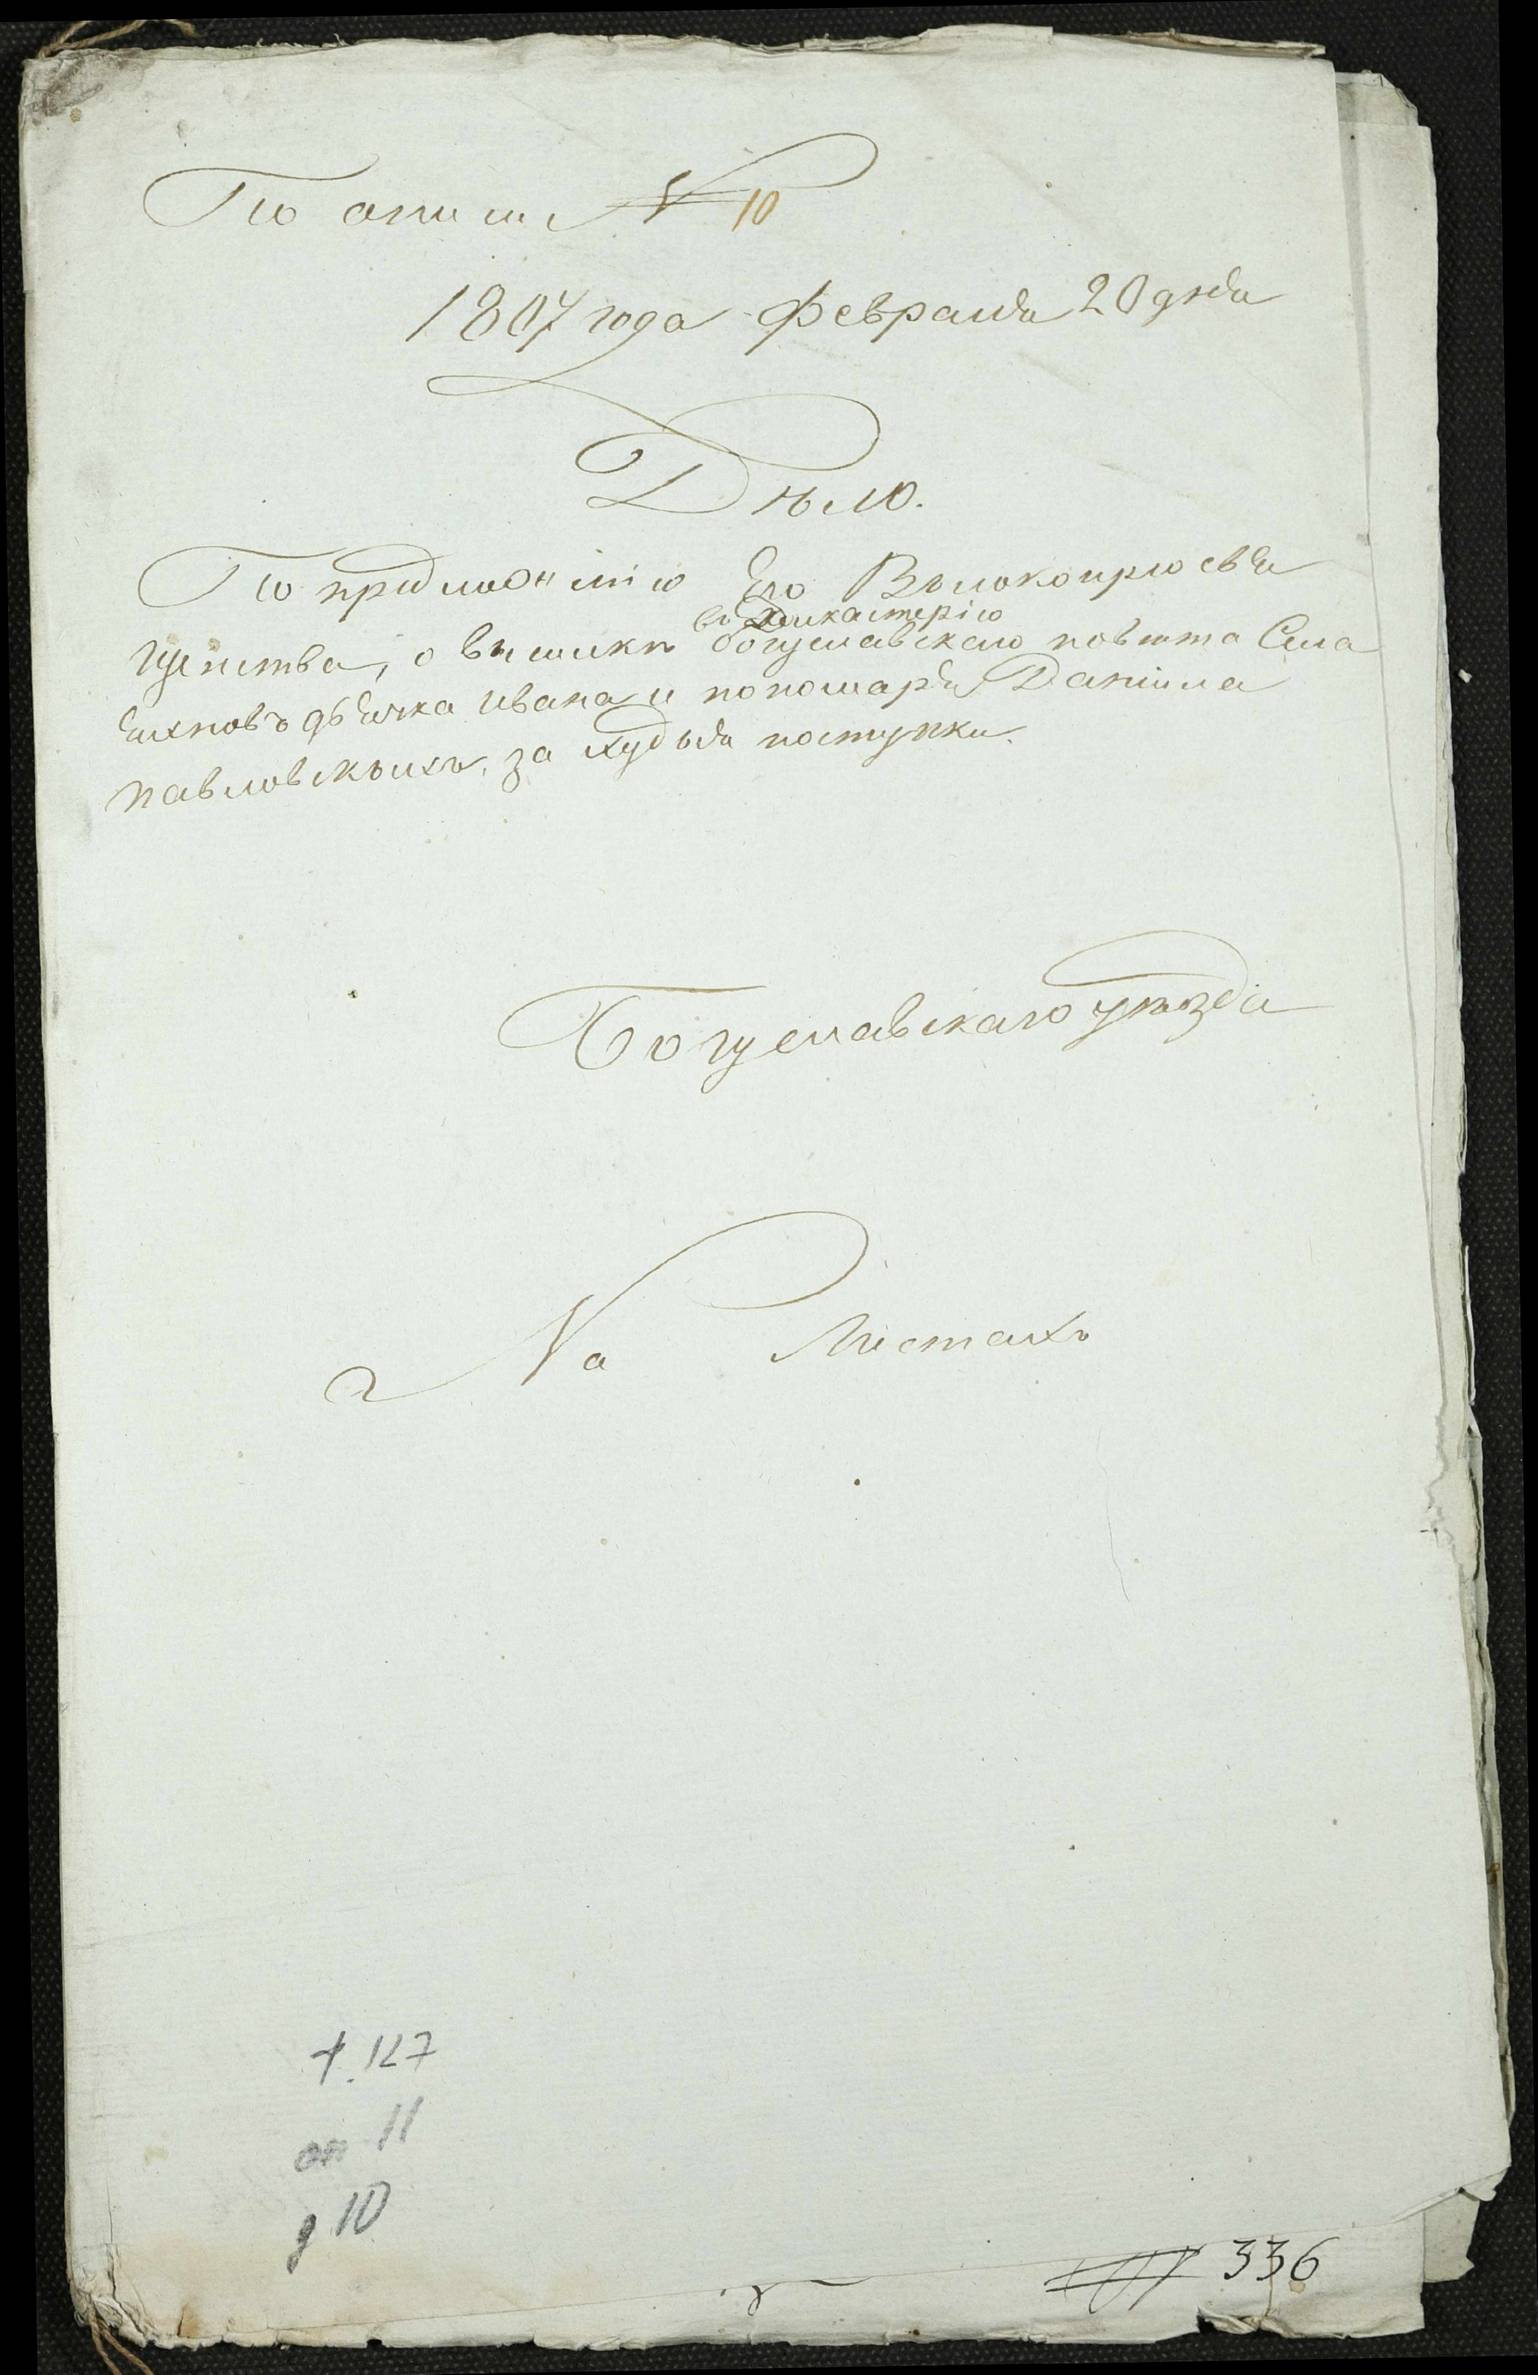 По описи № 10
1807 года февраля 20 дня
Дѣло.
По предложенію Его Высокопреосвя
щенства, о высылкѣ въ Дикастерію богуславскаго повѣта Села
дьячка Ивана и пономаря Даніила
Павловскихъ, за худыя поступки.
Богуславскаго уѣзда
На Листахъ
ф. 127
оп 11
д 10
336